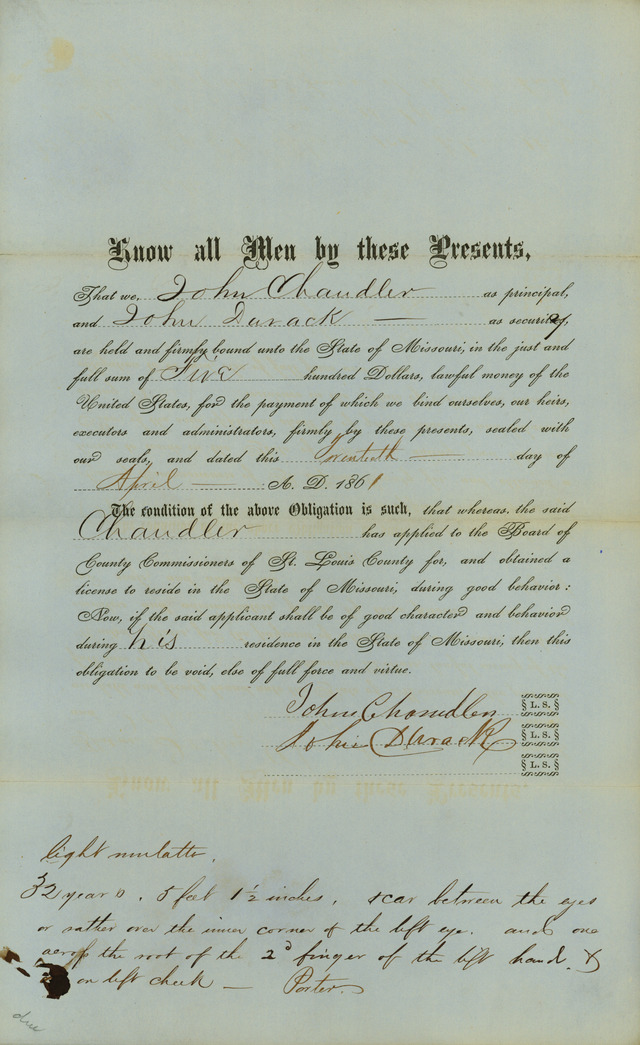 Know all Men by these Presents,
That we, John Chandler as principal,
and John Darack — as security,
are held and firmly bound unto the State of Missouri, in the just and
full sum of Five hundred Dollars, lawful money of the
United States, for the payment of which we bind ourselves, our heirs,
executors and administrators, firmly by these presents, sealed with
our seals, and dated this — day of
April — A. D. 1861
The condition of the above Obligation is such, that whereas, the said
Chandler has applied to the Board of
County Commissioners of St. Louis County for, and obtained a
license to reside in the State of Missouri, during good behavior:
Now, if the said applicant shall be of good character and behavior
during his residence in the State of Missouri, then this
obligation to be void, else of full force and virtue.
John Chandler § L. S. §
John Darack § L. S. §
§ L. S. §
light mulatto.
32 years, 5 feet 1½ inches, scar between the eyes
or rather over the inner corner of the left eye. and one
across the root of the 2d finger of the left hand. &
on left cheek — Porter.